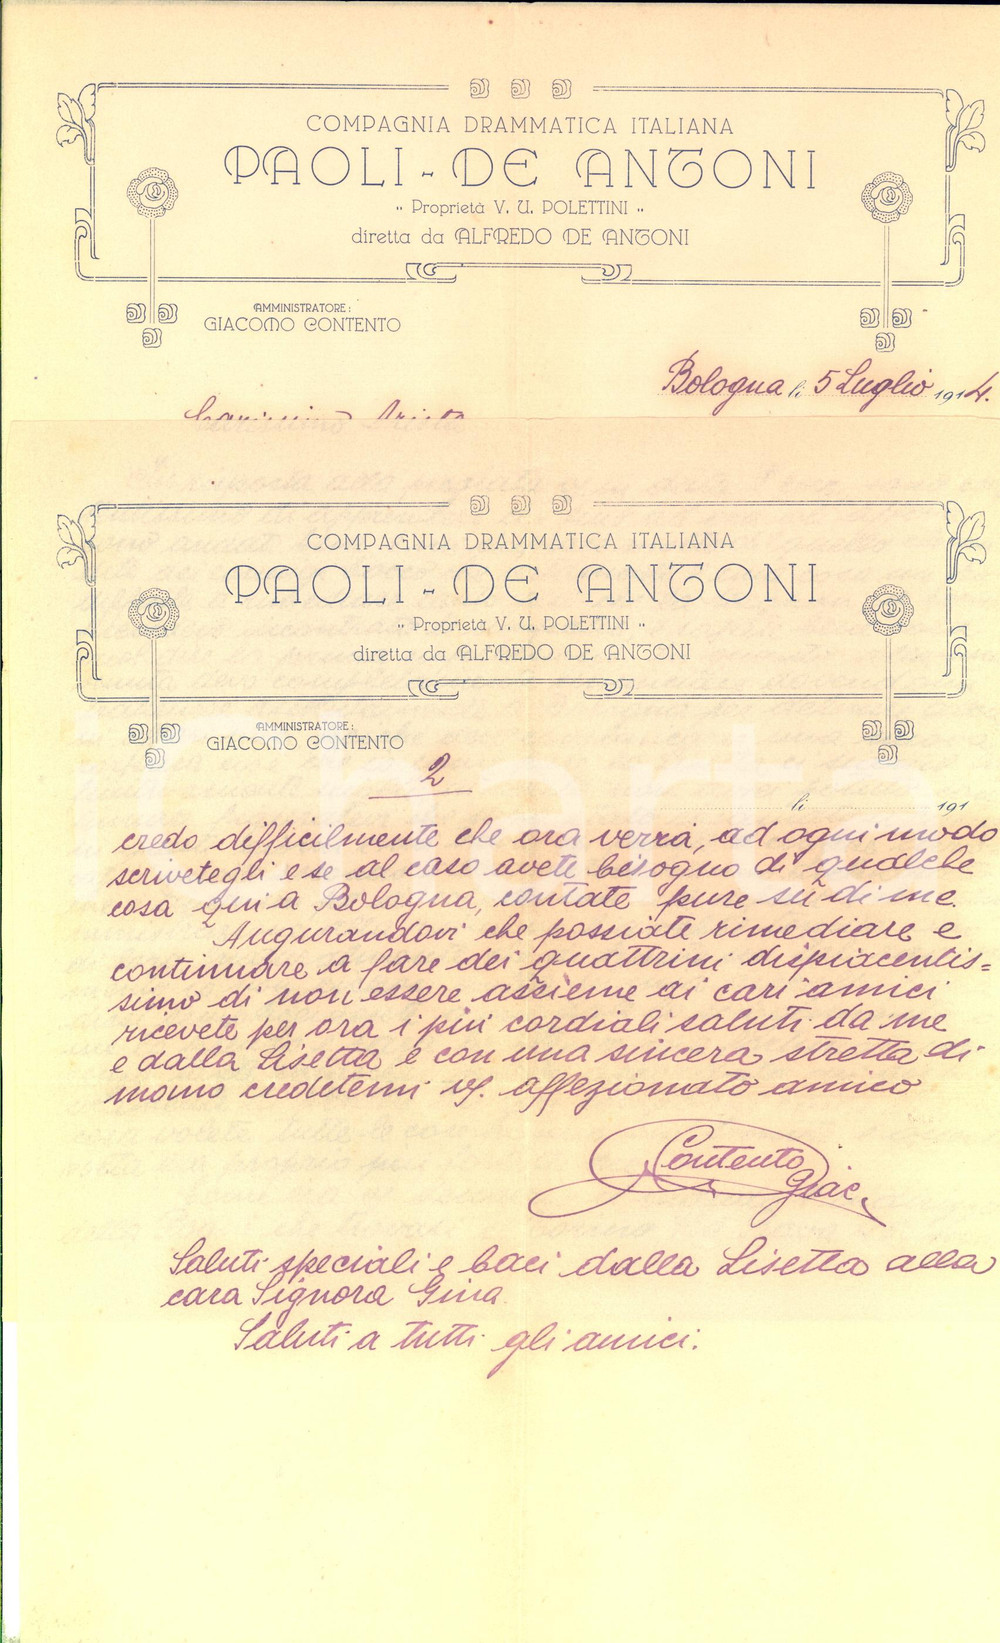 COMPAGNIA DRAMMATICA ITALIANA
PAOLI - DE ANTONI
" Proprietà V. U. POLETTINI "
diretta da ALFREDO DE ANTONI
AMMINISTRATORE:
GIACOMO CONTENTO
Bologna li 5 Luglio 1914.
COMPAGNIA DRAMMATICA ITALIANA
PAOLI - DE ANTONI
" Proprietà V. U. POLETTINI "
diretta da ALFREDO DE ANTONI
AMMINISTRATORE:
GIACOMO CONTENTO
2
li 191
credo difficilmente che ora verrà, ad ogni modo
scrivetegli e se al caso avete bisogno di qualche
cosa qui a Bologna, contate pure sù di me.
Augurandovi che possiate rimediare e
continuare a fare dei quattrini dispiacentis=
simo di non essere assieme ai cari amici
ricevete per ora i più cordiali saluti da me
e dalla Lisetta e con una sincera stretta di
mano credetemi vs. affezionato amico
Contento
Giac.
Saluti speciali e baci dalla Lisetta alla
cara Signora Gina.
Saluti a tutti gli amici.